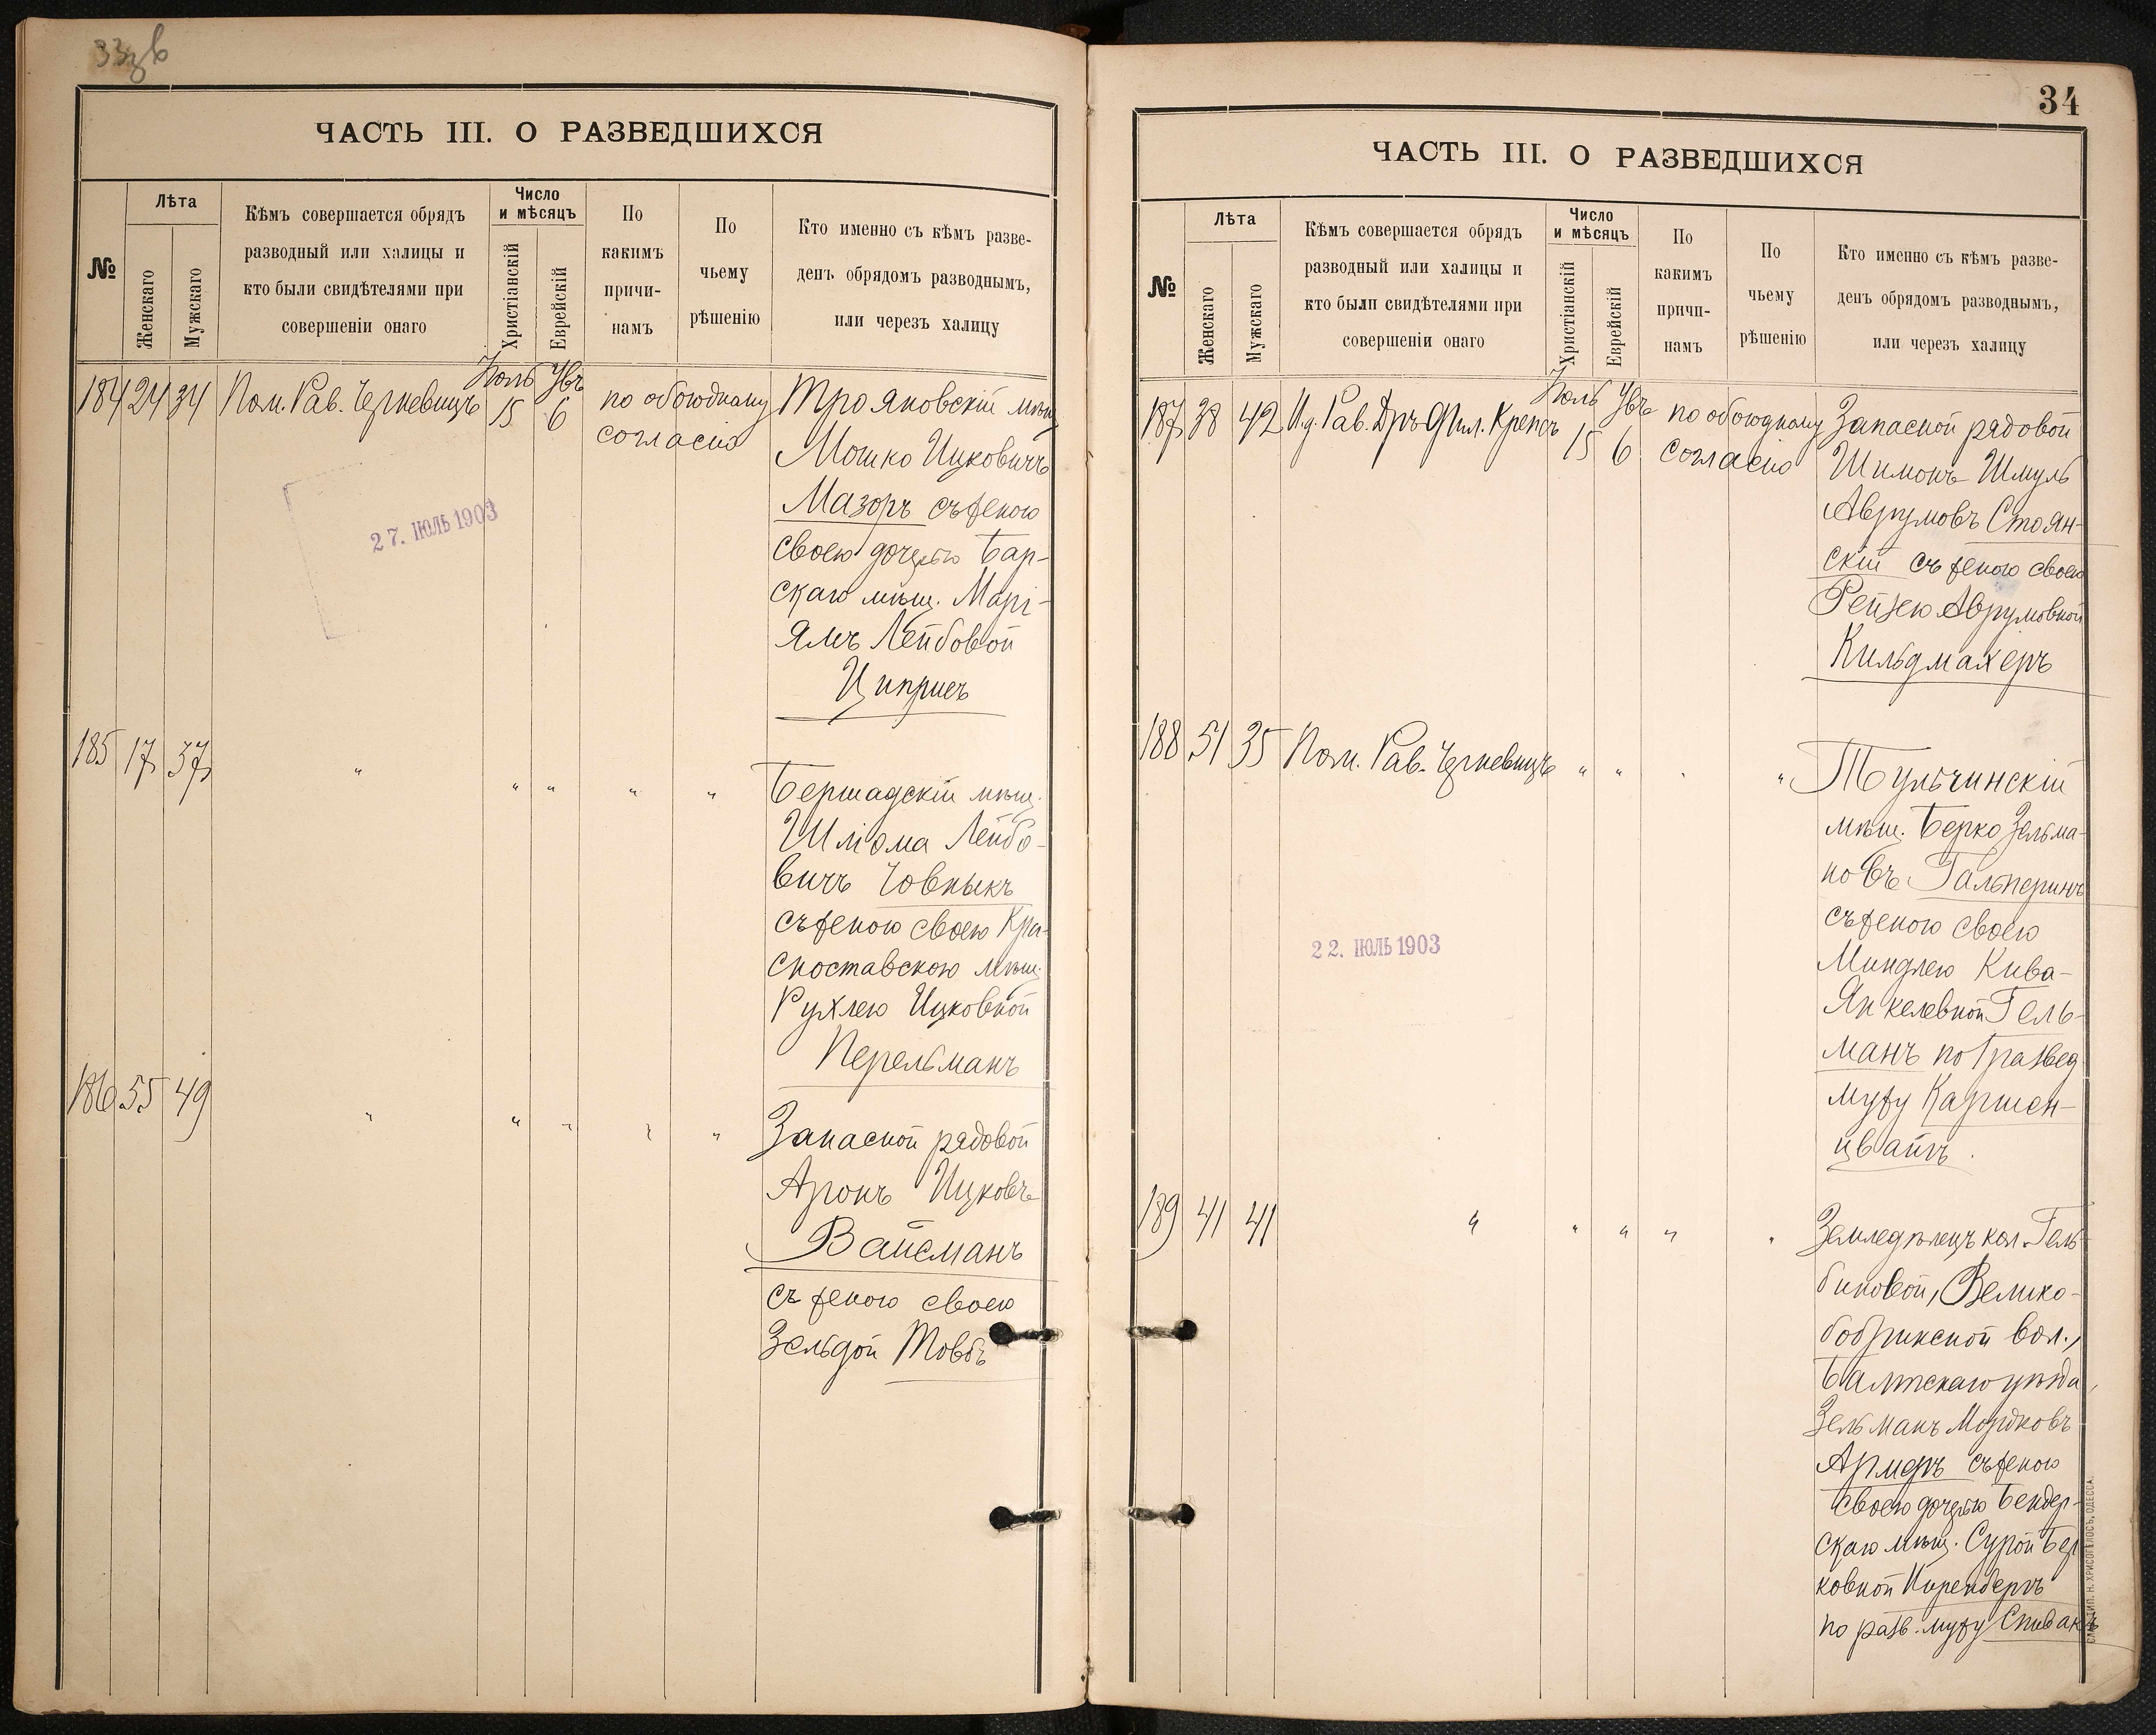 33 зв
ЧАСТЬ III. О РАЗВЕДШИХСЯ
№
Лѣта
Женскаго
Мужскаго
Кѣмъ совершается обрядъ
разводный или халицы и
кто были свидѣтелями при
совершеніи онаго
Число
и мѣсяцъ
Христіанскій
Еврейскій
По
какимъ
причи-
намъ
По
чьему
рѣшенію
Кто именно съ кѣмъ разве-
денъ обрядомъ разводнымъ,
или черезъ халицу
184 24 34 Пом. Рав. Черневицъ Іюль 15 Увъ 6 по обоюдному
согласію
Трояновскій мѣщ.
Мошко Ицковичъ
Мазоръ съ женою
своею дочерью Бар-
скаго мѣщ. Марі-
ямъ Лейбовой
Циприсъ
27. ІЮЛЬ 1903
185 17 37 " " " " "
Бершадскій мѣщ.
Шліома Лейбо-
вичъ Човныкъ
съ женою своею Кра-
сноставскою мѣщ.
Рухлею Ицковной
Перельманъ
186 55 49 " " " " "
Запасной рядовой
Аронъ Ицковъ
Вайсманъ
съ женою своею
Зельдой Товбъ
34
ЧАСТЬ III. О РАЗВЕДШИХСЯ
№
Лѣта
Женскаго
Мужскаго
Кѣмъ совершается обрядъ
разводный или халицы и
кто были свидѣтелями при
совершеніи онаго
Число
и мѣсяцъ
Христіанскій
Еврейскій
По
какимъ
причи-
намъ
По
чьему
рѣшенію
Кто именно съ кѣмъ разве-
денъ обрядомъ разводнымъ,
или черезъ халицу
187 38 42 И.д. Рав. Дръ Фил. Крепсъ Іюль 15 Увъ 6 по обоюдному
согласію
Запасной рядовой
Шимонъ Шмуль
Аврумовъ Стоян-
скій съ женою своею
Рейзею Аврумовной
Кильдмахеръ
188 51 35 Пом. Рав. Черневицъ " " " "
Тульчинскій
мѣщ. Берко Зельма-
новъ Гальперинъ
съ женою своею
Миндлею Кива-
Янкелевной Гель-
манъ по развед.
мужу Каршен-
цвайгъ.
22. ІЮЛЬ 1903
189 41 41 " " " " "
Земледѣлецъ кол. Гель-
биновой, Велико-
бобрикской вол.,
Балтскаго уѣзда,
Зельманъ Мордковъ
Армеръ съ женою
своею дочерью Бендер-
скаго мѣщ. Сурой Бер-
ковной Киренбергъ
по разв. мужу Спивакъ
СЛАВ. ТИП. Н. ХРИСОГЕЛОСЪ, ОДЕССА.